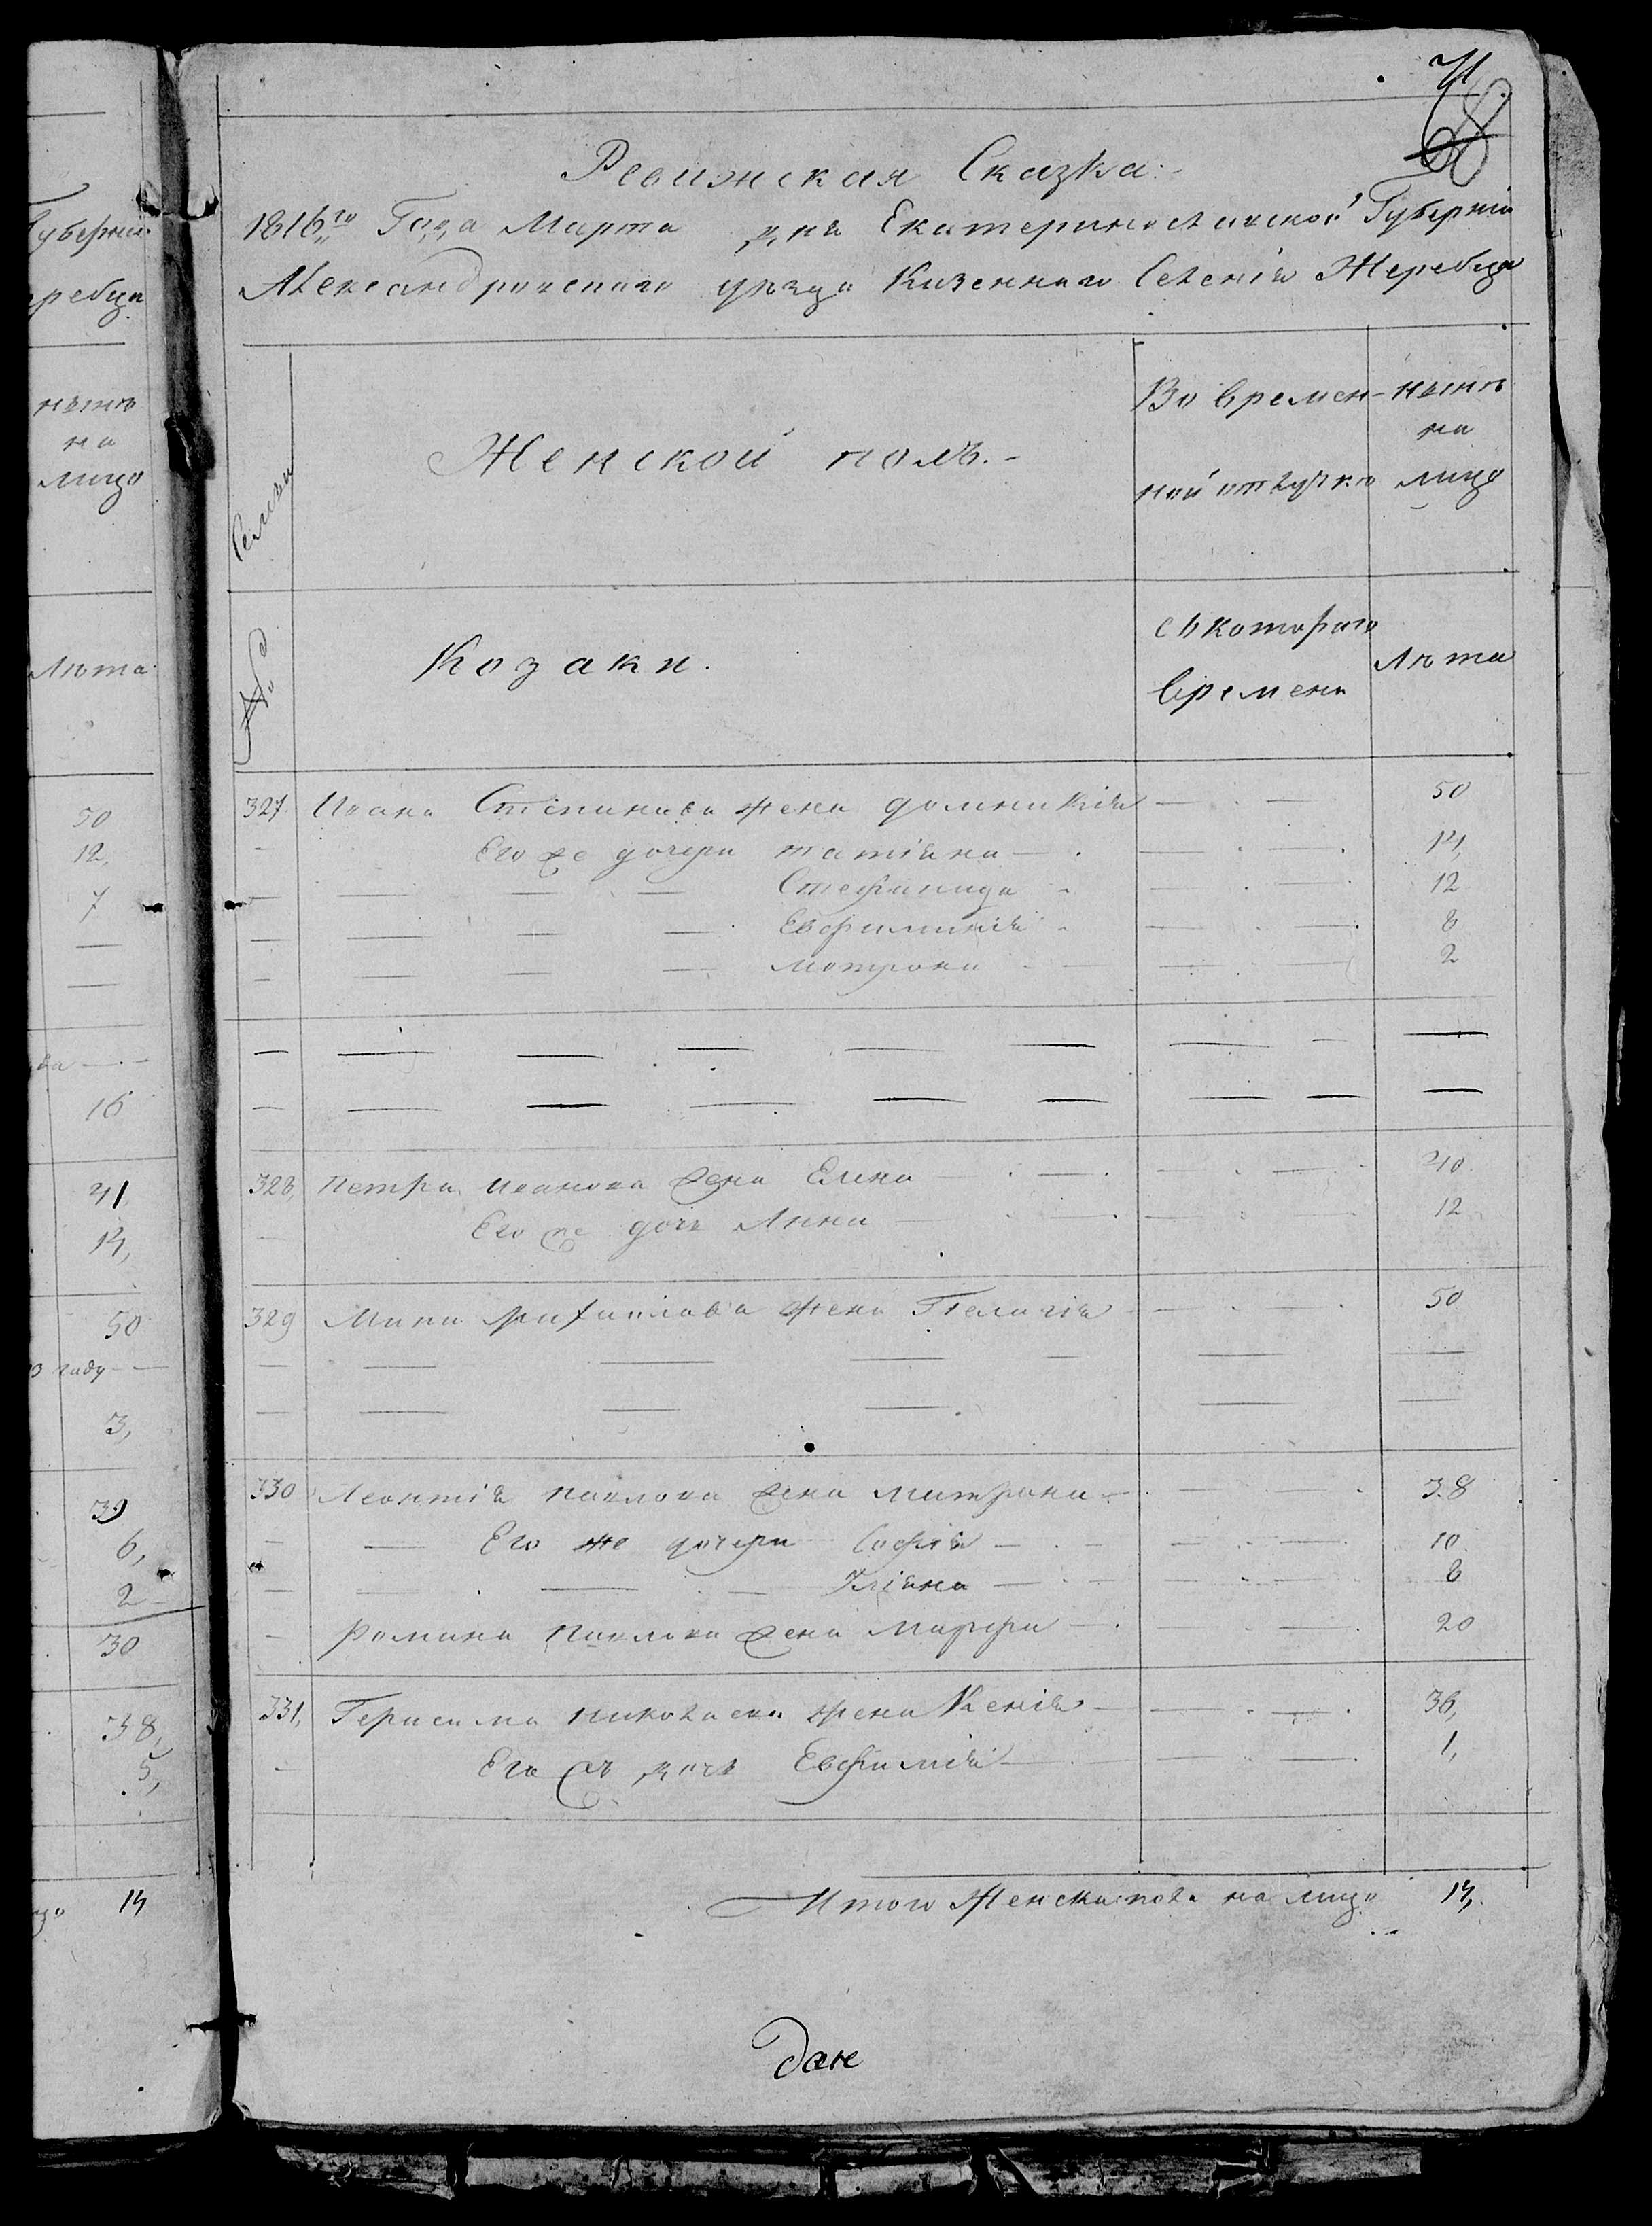 71
68
Ревижская Сказка:
1816го Года Марта дня Екатеринославской Губернiи
Александровского уезда Казенного Селенiя Жеребца
Семьи
Женской полъ.
Во времен-
ной отлучке
ныне
на
лицо
№
Козаки.
съ котораго
времени
Лета
327 Ивана Степанова жена домникiя 50
Его же дочери татiяна 14,
Стефанида 12
Евфимиия 8
Мотрона 2
328, Петра Иванова жена Елена 40
Его же дочь Анна 12
329 Мини Михаилова жена Пелагiя 50
330 Леонтiя Павлова жена Матрона 38
Его же дочери Софiя 10
Улiяна 8
Романа Павлова жена Марфа 20
331, Герасима николаева жена Ксенiя 36,
Его жъ дочь Евфимiя 1,
Итого Женска пола на лицо 14,
дане
Губернiи
еребца
ныне
на
лицо
Лета
50
12,
7
16
41
14,
50
году
3,
39
6,
2
30
38,
5,
14